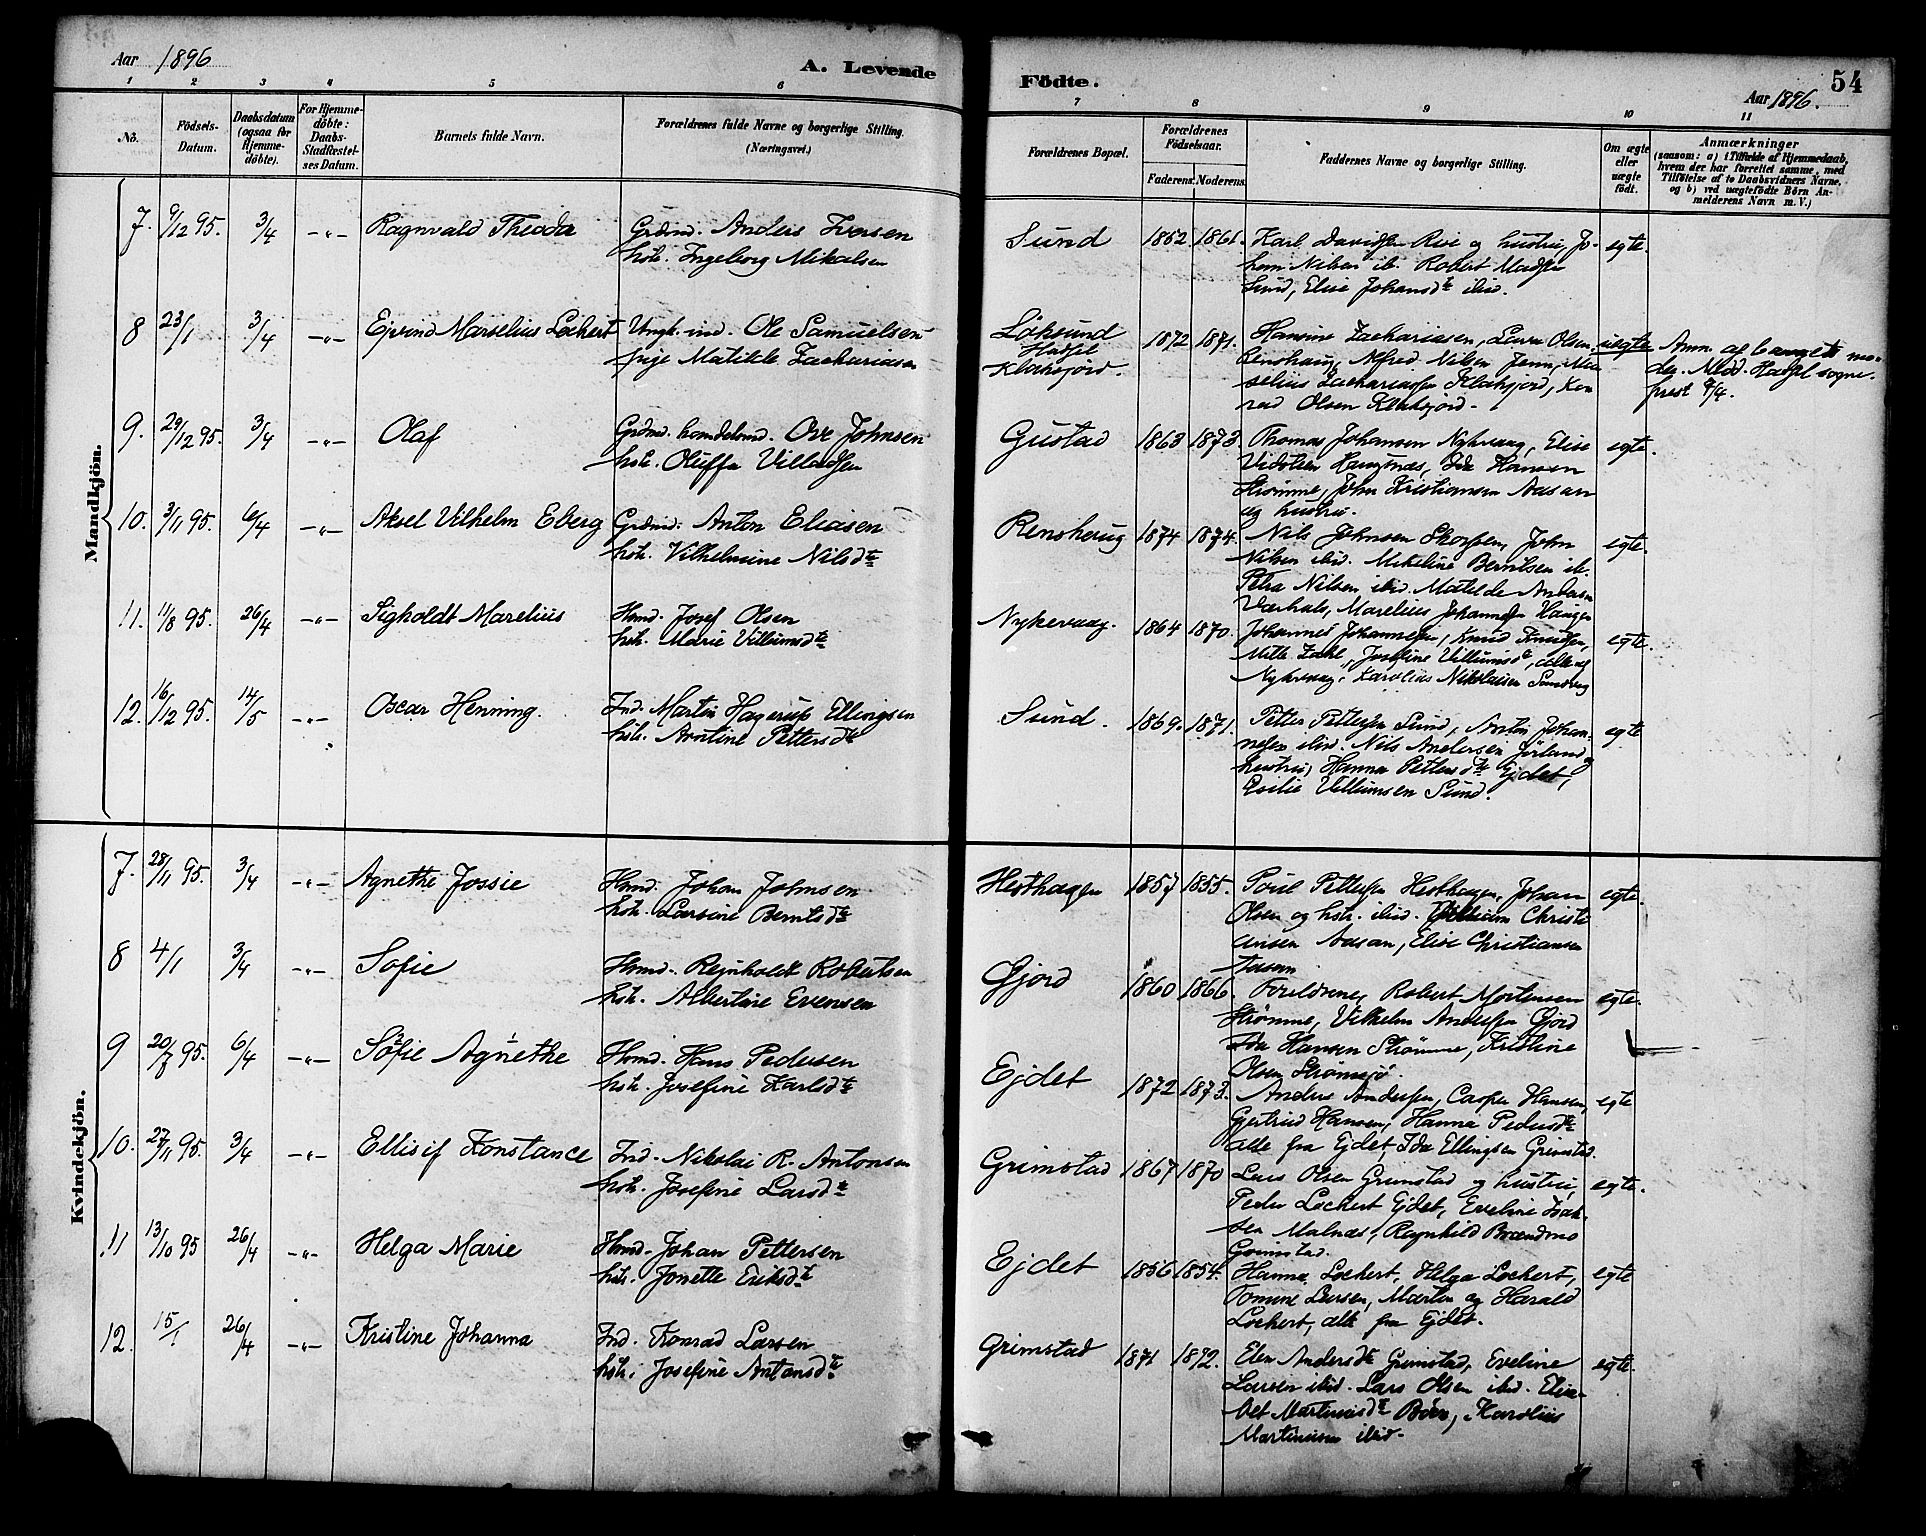 Aar 1896
A. Levende
Födte.
54
Aar 1896.
1 2 3 4 5 6 7 8 9 10 11
No.
Födsels-Datum.
Daabsdatum (ogsaa for Hjemme-döbte).
For Hjemme-döbte: Daabs-Stadfæstel-ses Datum.
Barnets fulde Navn.
Forældrenes fulde Navne og borgerlige Stilling.
(Næringsvei.)
Forældrenes Bopæl.
Forældrenes Födselsaar.
Faderens. Moderens.
Faddernes Navne og borgerlige Stilling.
Om ægte eller uægte födt.
Anmærkninger
(saasom: a) i Tilfælde af Hjemmedaab,
hvem der har forrettet samme, med
Tilföielse af to Daabsvidners Navne,
og b) ved uægtefödte Börn An-
melderens Navn m. V.)
Mandkjön.
7. 9/12 95. 3/4 -"- Ragnvald Theodor Grdmd. Anders Iversen Sund 1862. 1861. Karl Davidsen Rise og hustru, Jo-
hstr. Ingeborg Mikalsen
hem Nilsen ib. Robert Madsen
Sund, Elise Johansdtr ibid.
egte.
8 23/1 3/4 -"- Ejvind Marselius Lockert Ungk. ind. Ole Samuelsen
pige Matilde Zachariasen
Löksund
Hadsel
Klaksjord.
1872 1871. Hansine Zachariasen, Laura Olsen,
Renshaug, Alfred Nilsen Jenn, Mar-
selius Zachariassen Klaksjord, Kon-
rad Olsen Klaksjord.
uegte
Anm. af barnets mo-
der. Medd. Hadsel sogne-
prest 9/4.
9. 29/12 95. 3/4 -"- Olaf Grdmd. handelsmd. Ove Johnsen
hstr. Oluffa Villadsen
Gustad 1863 1873. Thomas Johansen Nykvaag, Elise
Vidolsen Haugsnæs, Ida Hansen
Strømme, John Kristiansen Aasan
og hustru.
egte.
10. 3/11 95. 6/4 -"- Aksel Vilhelm Eberg Grdmd. Anton Eliasen
hstr. Vilhelmine Nilsdtr
Renshaug 1874 1874. Nils Johnsen Skorpen, John
Nilsen ibid. Mekeline Berntsen ib.
Petra Nilsen ibid. Matilde Andersen
Værhals, Marelius Johannesen Haugen
egte.
11. 11/8 95. 26/4 -"- Sigholdt Marelius Hmd. Josef Olsen
hstr. Marie Villumsdtr
Nykevaag. 1864 1870. Johannes Johannesen, Knud Knudsen,
Mille Zahl, Josefine Villumsdtr, alle af
Nykvaag, Karolius Nikolaisen Sandvig
egte.
12. 16/12 95. 14/5 -"- Oscar Henning. Ind. Martin Hagerup Ellingsen
hstr. Arntine Pettersdtr
Sund. 1869. 1871. Petter Pettersen Sund, Anton Johan-
nesen ibid. Nils Andersen Jörland og
hustru, Hanna Pettersdtr Ejdet,
Emilie Villumsen Sund.
egte
Kvindekjön.
7. 28/11 95. 3/4 -"- Agnethe Jossie Hmd. Johan Johnsen
hstr. Larsine Berntsdtr
Hesthagen 1857 1855. Poul Pettersen Hesthagen, Johan
Olsen og hstr. ibid. Vilhelm Christi-
ansen Aasan, Elise Christiansen
Aasan
egte.
8 4/1 3/4 -"- Sofie Hmd. Rejnholdt Robertsen
hstr. Albertine Evensen
Gjord 1860 1866. Foreldrene, Robert Mortensen
Strømme, Vilhelm Andersen Gjord
Ida Hansen Strømme, Kristine
Olsen Strømsjö.
egte.
9 20/7 95. 6/4 -"- Sofie Agnethe Hmd. Hans Pedersen
hstr. Josefine Karlsdtr
Ejdet 1872 1873. Anders Andersen, Casper Hansen,
Gjertrud Hansen, Hanna Pedersdtr
alle fra Ejdet, Ida Ellingsen Grimstad.
egte
10. 27/11 95. 3/4 -"- Ellisif Konstance Ind. Nikolai R. Antonsen
hstr. Josefine Larsdtr
Grimstad 1867 1870 Lars Olsen Grimstad og hustru,
Peder Lockert Ejdet, Eveline Isak-
sen Malnæs, Ragnhild Brændmo
Grimstad.
egte.
11 13/10 95 26/4 -"- Helga Marie Hmd. Johan Pettersen
hstr. Jonette Eriksdtr
Ejdet 1856 1854. Hanna Lockert, Helga Lockert,
Tomine Larsen, Martin og Harald
Lockert, alle fra Ejdet.
egte
12. 15/1 26/4 -"- Kristine Johanna Ind. Konrad Larsen
hstr. Josefine Antonsdtr
Grimstad 1871 1872. Elen Andersdtr Grimstad, Eveline
Larsen ibid. Lars Olsen ibid. Elisa-
bet Martinusdtr Böen, Karolius
Martinusen ibid.
egte.